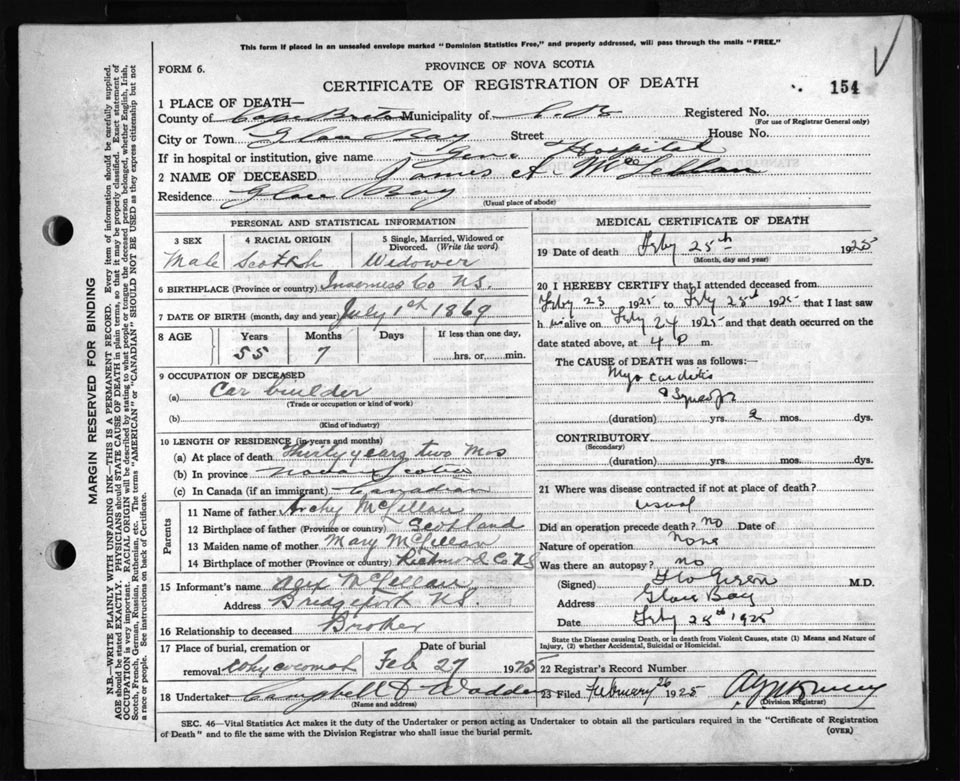 This form if placed in an unsealed envelope marked "Dominion Statistics Free," and properly addressed, will pass through the mails "FREE."
FORM 6.
PROVINCE OF NOVA SCOTIA
CERTIFICATE OF REGISTRATION OF DEATH
154
1 PLACE OF DEATH—
County of Cape Breton Municipality of C. B. Registered No.
(For use of Registrar General only)
City or Town Glace Bay Street House No.
If in hospital or institution, give name Gen. Hospital
2 NAME OF DECEASED James A. McLellan
Residence Glace Bay
(Usual place of abode)
PERSONAL AND STATISTICAL INFORMATION
3 SEX 4 RACIAL ORIGIN 5 Single, Married, Widowed or Divorced. (Write the word)
Male Scotch Widower
6 BIRTHPLACE (Province or country) Inverness Co N.S.
7 DATE OF BIRTH (month, day and year) July 1st 1869
8 AGE Years Months Days If less than one day,
55 7 hrs. or min.
9 OCCUPATION OF DECEASED
(a) Car builder
(Trade or occupation or kind of work)
(b)
(Kind of industry)
10 LENGTH OF RESIDENCE (in years and months)
(a) At place of death Thirty years two Mos
(b) In province Nova Scotia
(c) In Canada (if an immigrant) Canadian
Parents
11 Name of father Archy McLellan
12 Birthplace of father (Province or country) Scotland
13 Maiden name of mother Mary McLellan
14 Birthplace of mother (Province or country) Richmond Co N S
15 Informant's name Alex McLellan
Address Bridgeport N.S.
16 Relationship to deceased Brother
17 Place of burial, cremation or removal Date of burial
Feb 27 1925
18 Undertaker Campbell & Wadden
(Name and address)
MEDICAL CERTIFICATE OF DEATH
19 Date of death Feby 25th 1925
(Month, day and year)
20 I HEREBY CERTIFY that I attended deceased from
Feby 23 1925 to Feby 25th 1925 that I last saw
h im alive on Feby 24 1925 and that death occurred on the
date stated above, at 4 P m.
The CAUSE of DEATH was as follows:—
Myocarditis
(duration) yrs. 2 mos. dys.
CONTRIBUTORY
(Secondary)
(duration) yrs. mos. dys.
21 Where was disease contracted if not at place of death?
usual
Did an operation precede death? no Date of
Nature of operation None
Was there an autopsy? no
(Signed) M.D.
Address Glace Bay
Date Feby 25th 1925
State the Disease causing Death, or in death from Violent Causes, state (1) Means and Nature of Injury, (2) whether Accidental, Suicidal or Homicidal.
22 Registrar's Record Number
23 Filed February 26 1925
(Division Registrar)
SEC. 46—Vital Statistics Act makes it the duty of the Undertaker or person acting as Undertaker to obtain all the particulars required in the "Certificate of Registration
of Death" and to file the same with the Division Registrar who shall issue the burial permit.
(OVER)
MARGIN RESERVED FOR BINDING
N.B.—WRITE PLAINLY WITH UNFADING INK—THIS IS A PERMANENT RECORD. Every item of information should be carefully supplied.
AGE should be stated EXACTLY. PHYSICIANS should STATE CAUSE OF DEATH in plain terms, so that it may be properly classified. Exact statement of
OCCUPATION is very important. RACIAL ORIGIN will be described by stating to what people or race the deceased person belonged, whether English, Irish,
Scotch, French, German, Russian, Ruthenian, etc. The terms "AMERICAN" or "CANADIAN" SHOULD NOT BE USED as they express citizenship but not
a race or people. See instructions on back of Certificate.